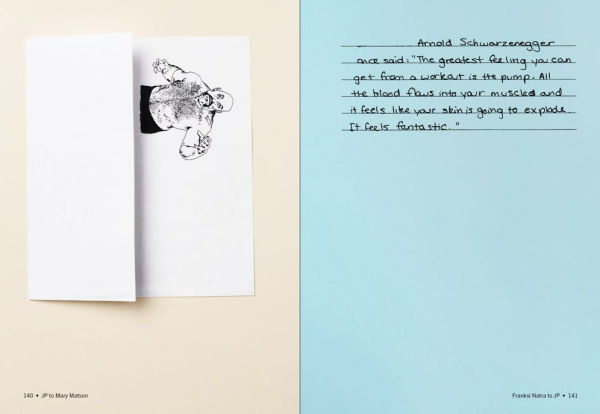 140 • JP to Mary Matson
Arnold Schwarzenegger
once said: "The greatest feeling you can
get from a workout is the pump. All
the blood flows into your muscles and
it feels like your skin is going to explode.
It feels fantastic."
Franksi Natra to JP • 141